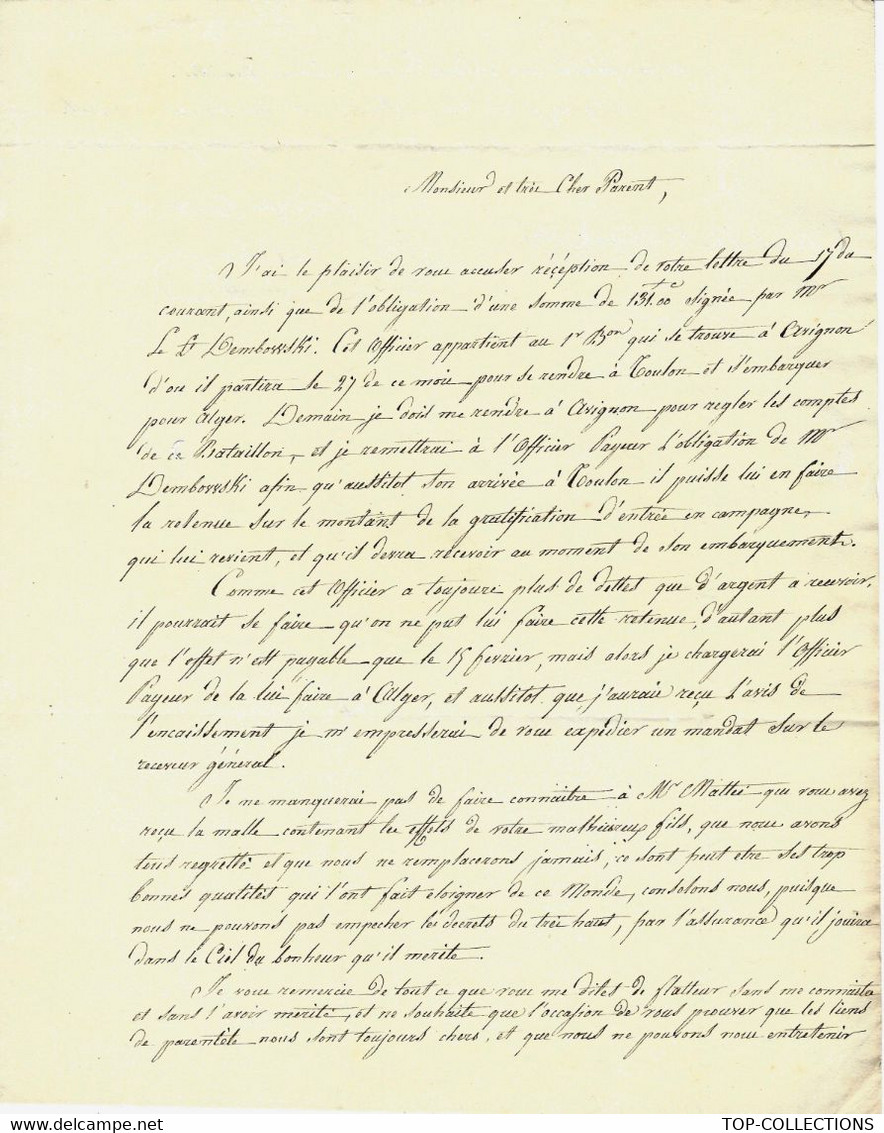 Monsieur et très Cher Parent,
J'ai le plaisir de vous accuser réçéption de votre lettre du 17 du
courant, ainsi que de l'obligation d'une somme de 131.00 signée par Mr
Le Lt Dembowski. Cet Officier appartient au 1er Bon qui se trouve à Avignon
d'ou il partira le 27 de ce mois pour se rendre à Toulon et s'embarquer
pour Alger. Demain je dois me rendre à Avignon pour regler les comptes
de ce Bataillon, et je remettrai à l'Officier Payeur l'obligation de Mr
Dembowski afin qu'aussitot son arrivée à Toulon il puisse lui en faire
la retenue sur le montant de la gratification d'entrée en campagne,
qui lui revient, et qu'il devra recevoir au moment de son embarquement.
Comme cet Officier a toujours plus de dettes que d'argent a recevoir,
il pourrait se faire qu'on ne put lui faire cette retenue, d'autant plus
que l'effet n'est payable que le 15 fevrier, mais alors je chargerai l'Officier
Payeur de la lui faire à Alger, et aussitot que j'aurais reçu l'avis de
l'encaissement je m'empresserai de vous expedier un mandat sur le
receveur général.
Je ne manquerai pas de faire connaitre à Mr Matteï que vous avez
reçu la malle contenant les effets de votre malheureux fils, que nous avons
tous regretté et que nous ne remplacerons jamais, ce sont peut etre ses trop
bonnes qualités qui l'ont fait eloigner de ce Monde, consolons nous, puisque
nous ne pouvons pas empecher les decrets du très haut, par l'assurance qu'il jouira
dans le Ciel du bonheur qu'il merite.
Je vous remercie de tout ce que vous me dites de flatteur sans me connaitre
et sans l'avoir merité, et ne souhaite que l'occasion de vous prouver que les liens
de parentèle nous sont toujours chers, et que nous ne pouvons nous entretenir
TOP-COLLECTIONS